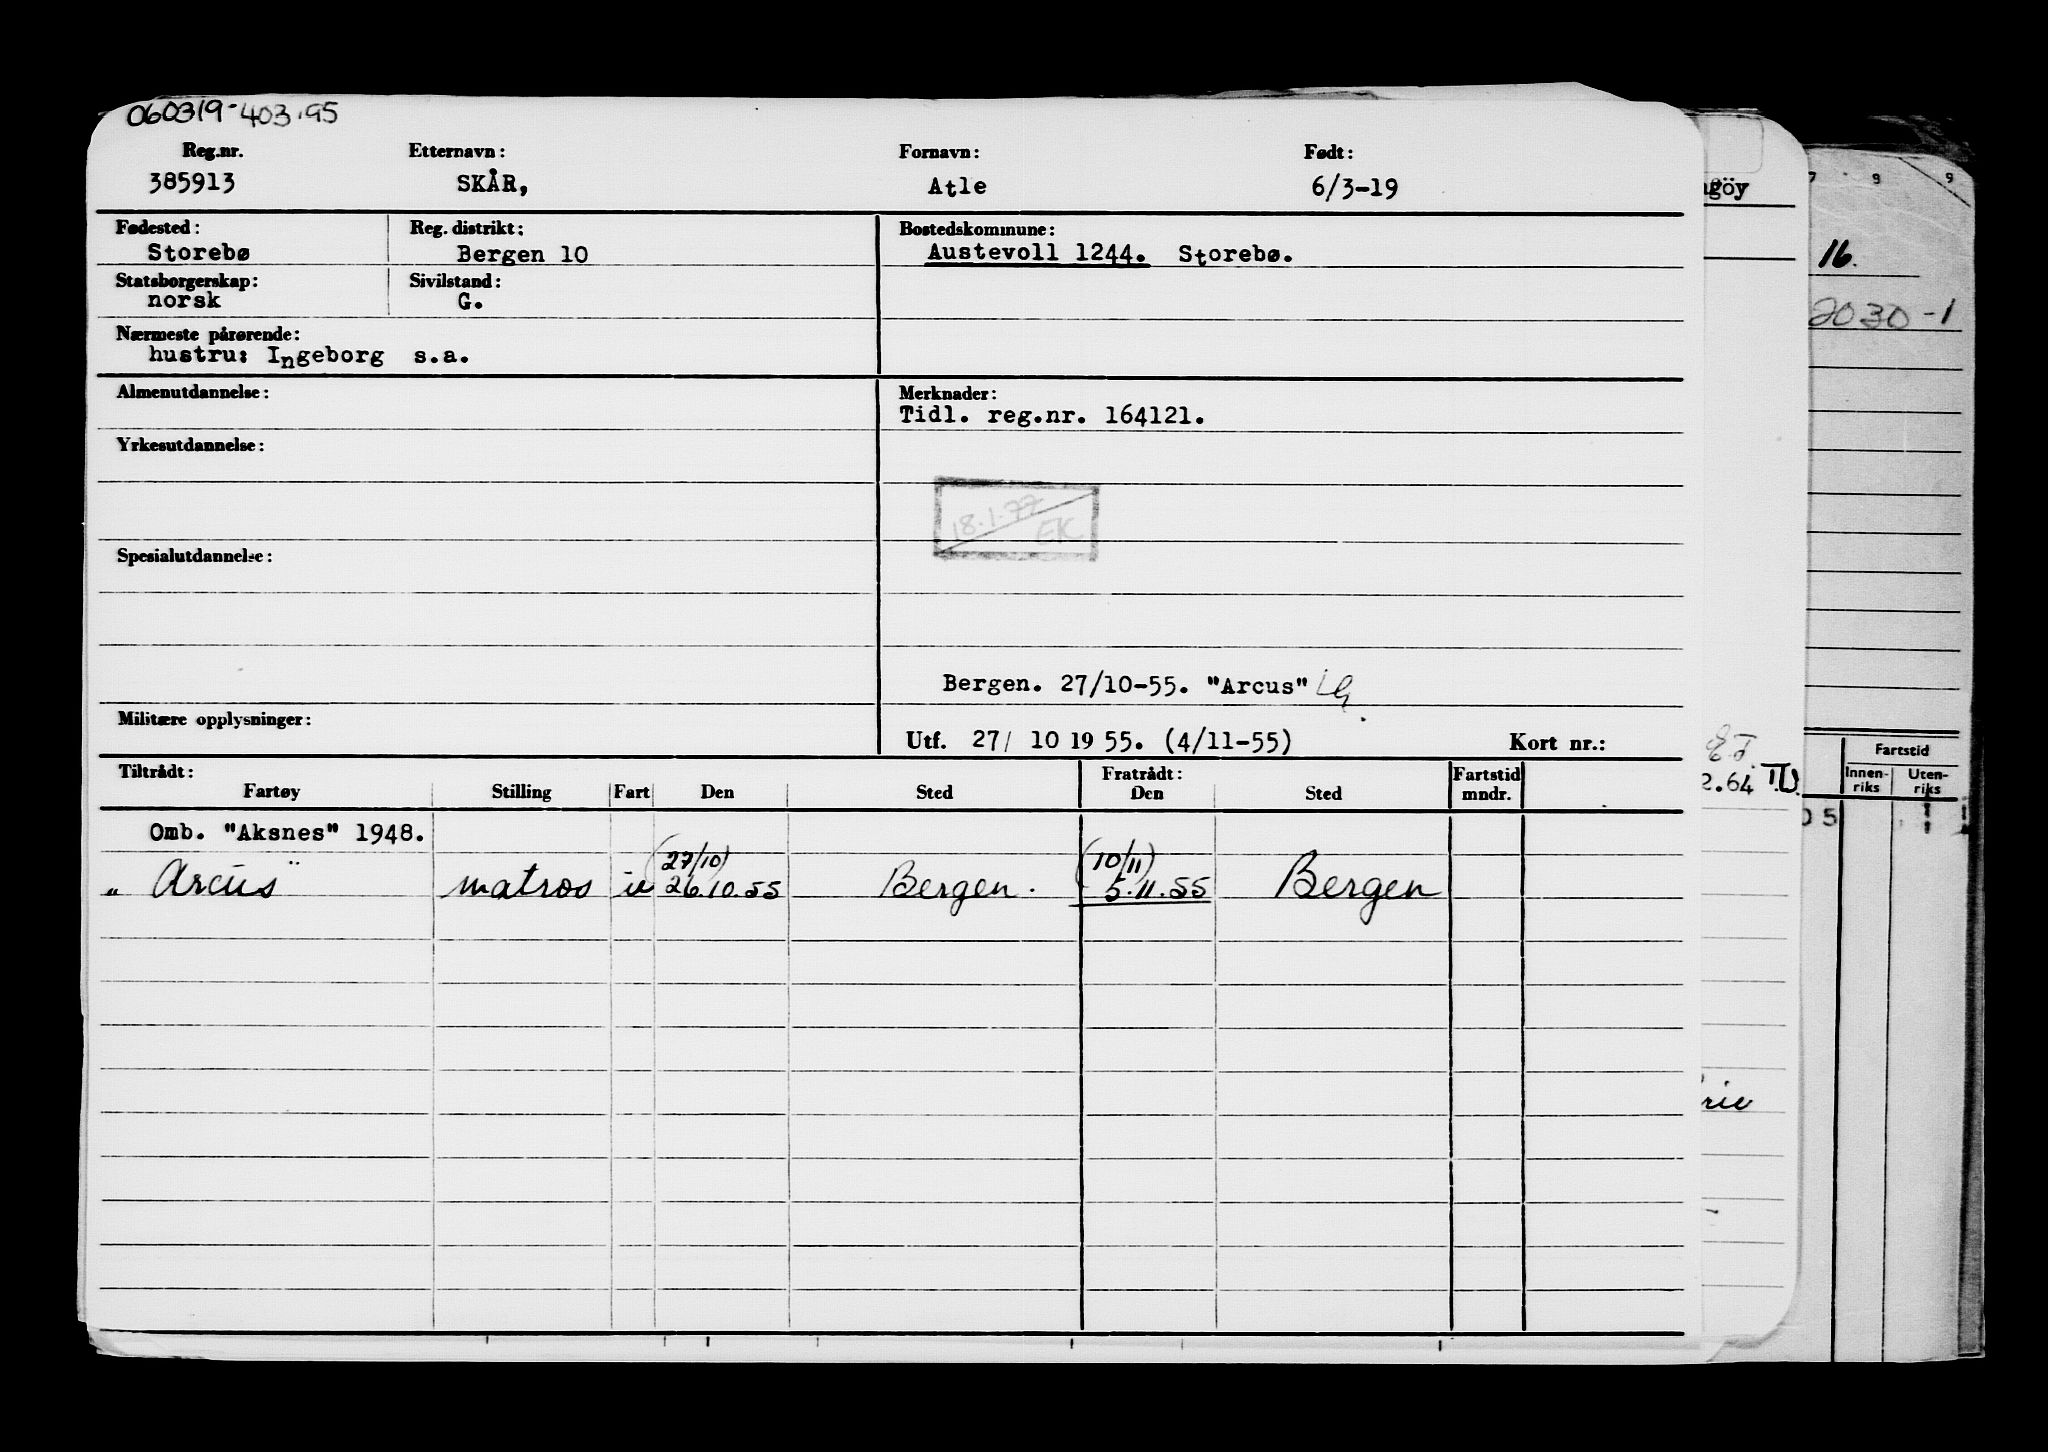 060319-403.95
Reg.nr. Etternavn: Fornavn: Født:
385913 SKÅR, Atle 6/3-19
Fødested: Reg. distrikt: Bostedskommune:
Storebø Bergen 10 Austevoll 1244. Storebø.
Statsborgerskap: Sivilstand:
norsk G.
Nærmeste pårørende:
hustru: Ingeborg s.a.
Almenutdannelse: Merknader:
Tidl. reg.nr. 164121.
Yrkesutdannelse:
18.1.77
EK
Spesialutdannelse:
Bergen. 27/10-55. "Arcus"
Militære opplysninger:
Utf. 27/ 10 19 55. (4/11-55) Kort nr.:
Tiltrådt: Fratrådt: Fartstid
Fartøy Stilling Fart Den Sted Den Sted mndr.
Omb. "Aksnes" 1948.
(27/10) (10/11)
" Arcus" matros 26.10.55 Bergen. 5.11.55 Bergen
gøy
7 9 9
16.
2030-1
2.64 T.D.
Fartstid
Innen-
riks
Uten-
riks
05